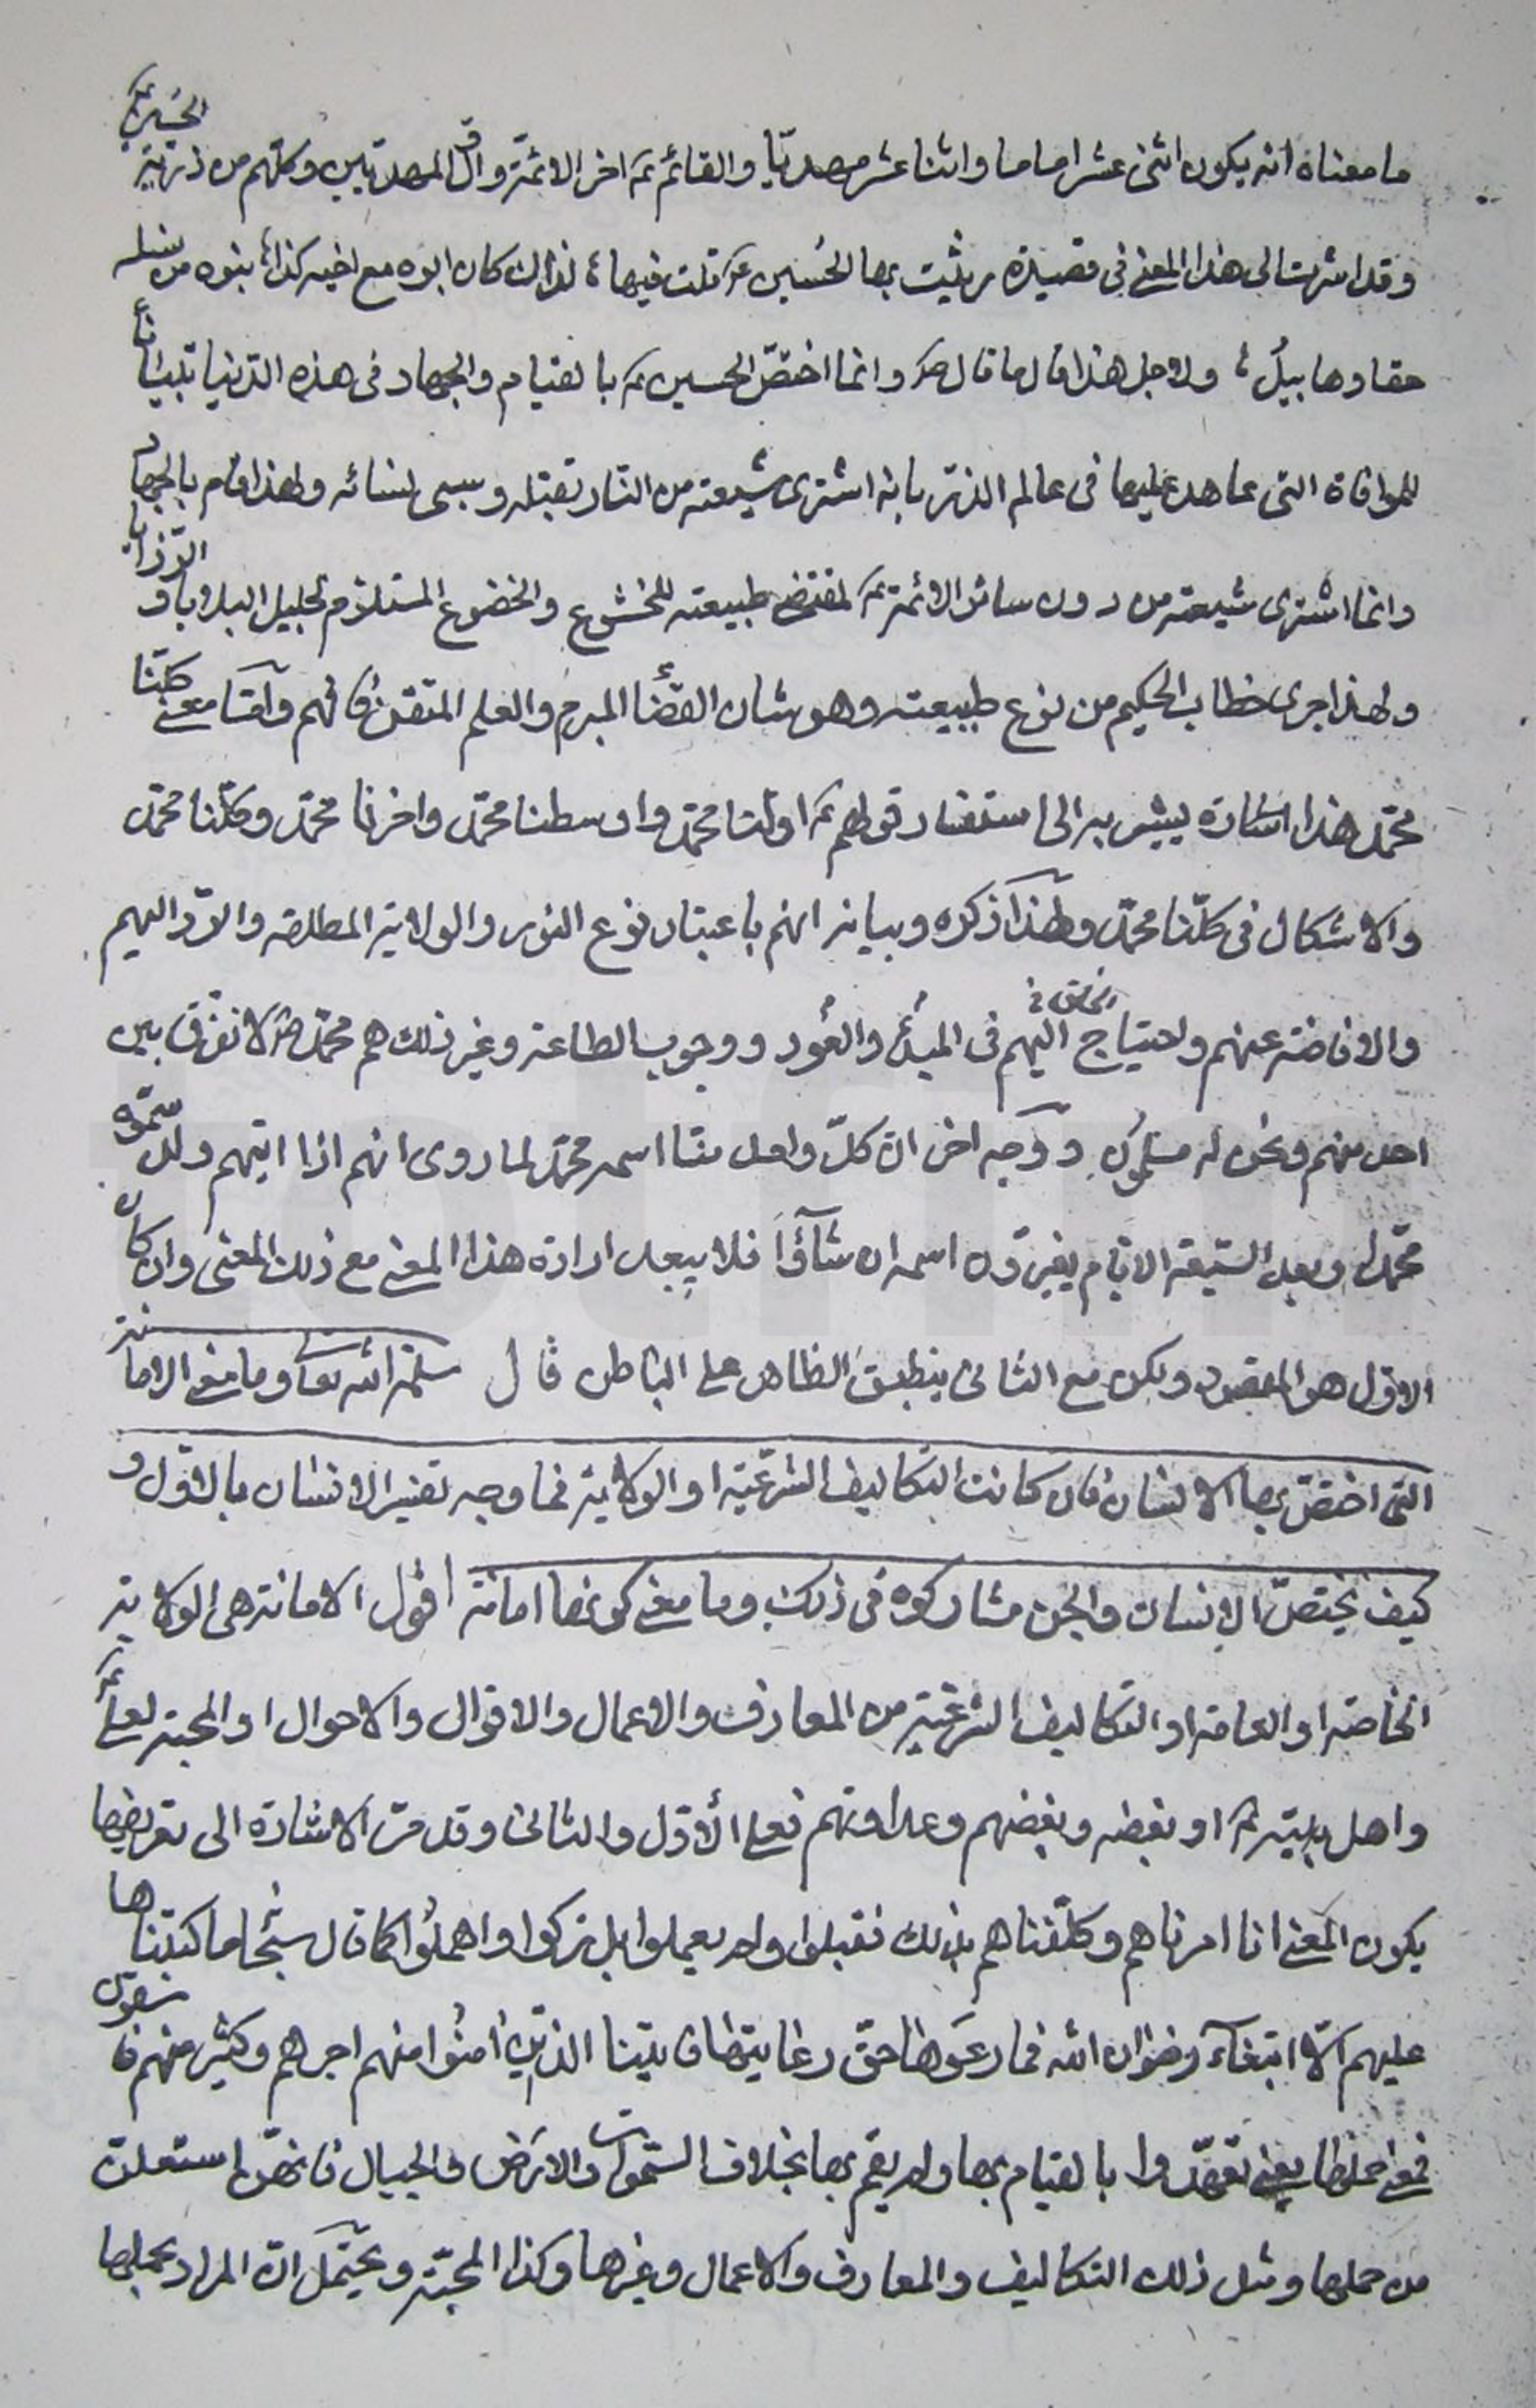 ما معناه انه يكون اثنى عشر اماما واثنا عشر مهديّا والقائم ع اخر الائمّة واوّل المهديّين وكلّهم من ذريّة الحسين ع
وقد اشرت الى هذا المعنى فى قصيدة رثيت بها الحُسين ع قلت فيها، لذالك كان ابوه مع اخيه كذا، بنوه من نسله
حقا وهابيلُ، ولاجل هذا قال ما قال ص وانما اختصّ الحسين ع بالقيام والجهاد فى هذه الدّنيا تبيانا
للموافاة التى عاهد عليها فى عالم الذرّ بانه اشترى شيعته من النار بقتله وسبى نسائه ولهذا قام بالجهاد
وانما اشترى شيعته من دون سائر الائمّة ع لمقتضى طبيعته للخشوع والخضوع المستلزم لجليل البلاوى الرّزايا
ولهذا جرى خطاب الحكيم من نوع طبيعته وهو شان القضاء المبرم والعلم المتقن فافهم وامّا معنى كلّنا
محمّد هذا اشارة يشير به الى استفسار قولهم ع اوّلنا محمّد واوسطنا محمّد واخرنا محمّد وكلّنا محمّد
والاشكال فى كلّنا محمّد ولهذا ذكره وبيانه انهم باعتبار نوع النور والولاية المطلقه والرّد اليهم
والافاضة عنهم واحتياج الخلق اليهم فى المبدئ والعُود ووجوب الطاعة وغير ذلك هم محمّد ص لا نفرّق بين
احد منهم ونحن له مسلمُون ووجه اخر انّ كلّ واحد منّا اسمه محمّد لما روى انهم اذا اتيهم ولد سمّوه
محمّدا وبعد السّبعة الايّام يغيرّون اسمه ان شاؤا فلا يبعد ارادة هذا المعنى مع ذلك المعنى وان كان
الاوّل هو المقصود ولكن مع الثانى ينطبق الظاهر على الباطن قال سلّمه الله تعالى وما معنى الامانة
التى اختصّ بها الانسان فان كانت التكاليف الشرعيّة او الولاية فما وجه تفسير الانسان بالاوّل و
كيف يختصّ الانسان والجن مشاركوه فى ذلك وما معنى كونها امانة اقول الامانة هى الولاية
الخاصّة او العامة او التكاليف الشرعيّة من المعارف والاعمال والاقوال والاحوال او المحبّة لعلىّ ع
واهل بيته ع او بغضه وبغضهم وعداوتهم فعلى الأوّل والثانى وقد مرّت الاشارة الى تعريفها
يكون المعنى انا امرناهم وكلّفناهم بذلك فقبلوا ولم يعملوا بل تركوا واهملُوا كما قال سُبحانه ما كتبناها
عليهم الّا ابتغاء رضوان الله فما رعَوها حقّ رعايتها فاتينا الذين امنُوا منهم اجرهم وكثير منهم فاسقون
فمعنى حملها يعنى تعهّدوا بالقيام بها ولم يقم بها بخلاف السّموات والارض والجبال فانهنّ استعلت
من حملها ومثل ذلك التكاليف والمعارف والاعمال وغيرها وكذا المحبّة ويحتمل انّ المراد بحملها